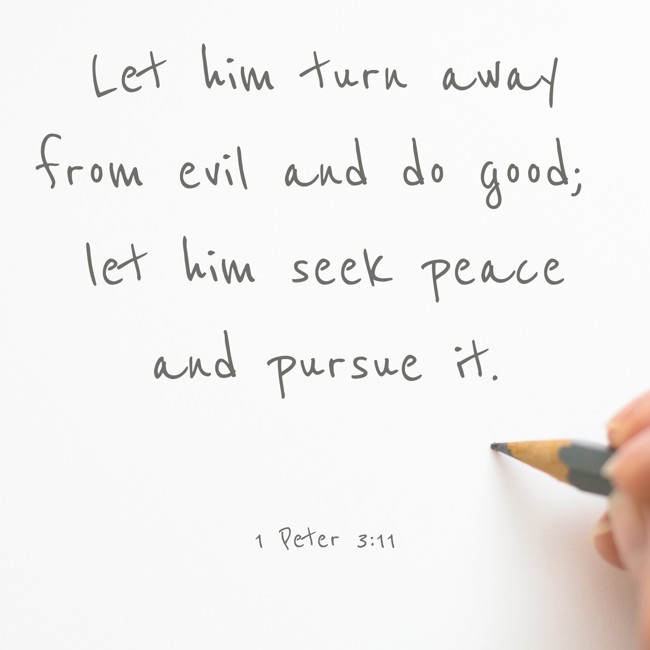 Let him turn away
from evil and do good;
let him seek peace
and pursue it.
1 Peter 3:11